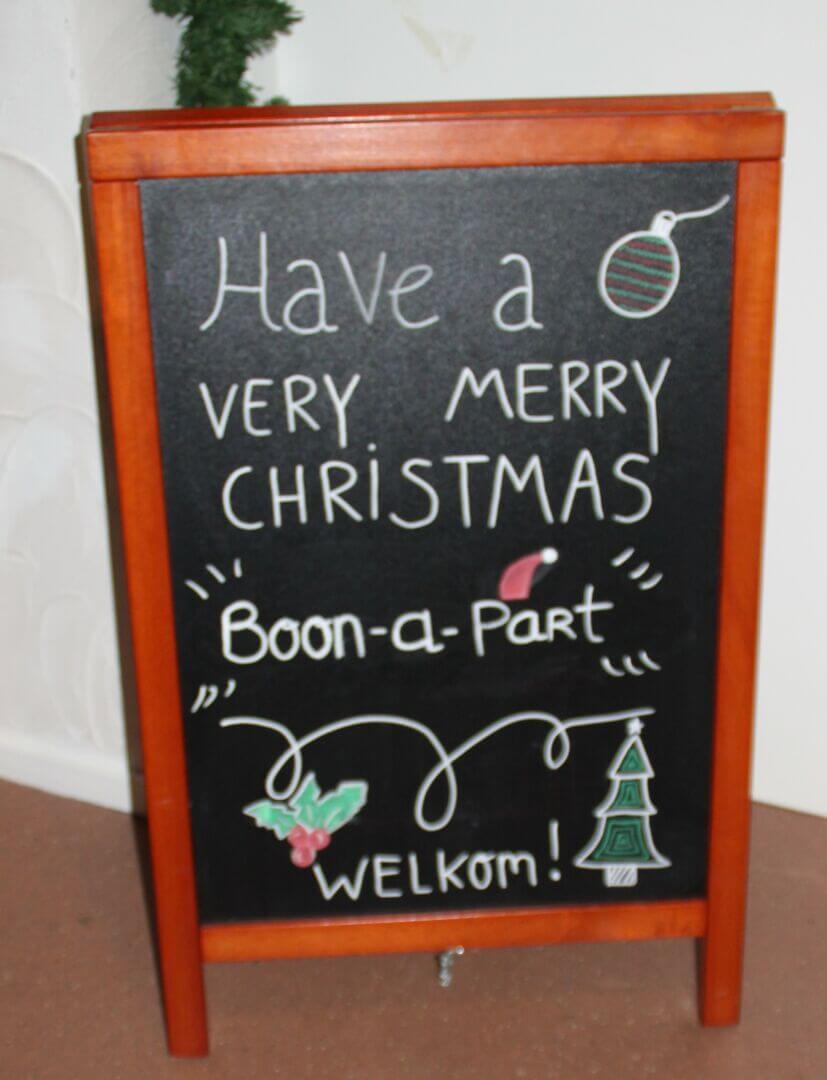 Have a
VERY MERRY
CHRiSTMAS
Boon-a-Part
WELKOM!